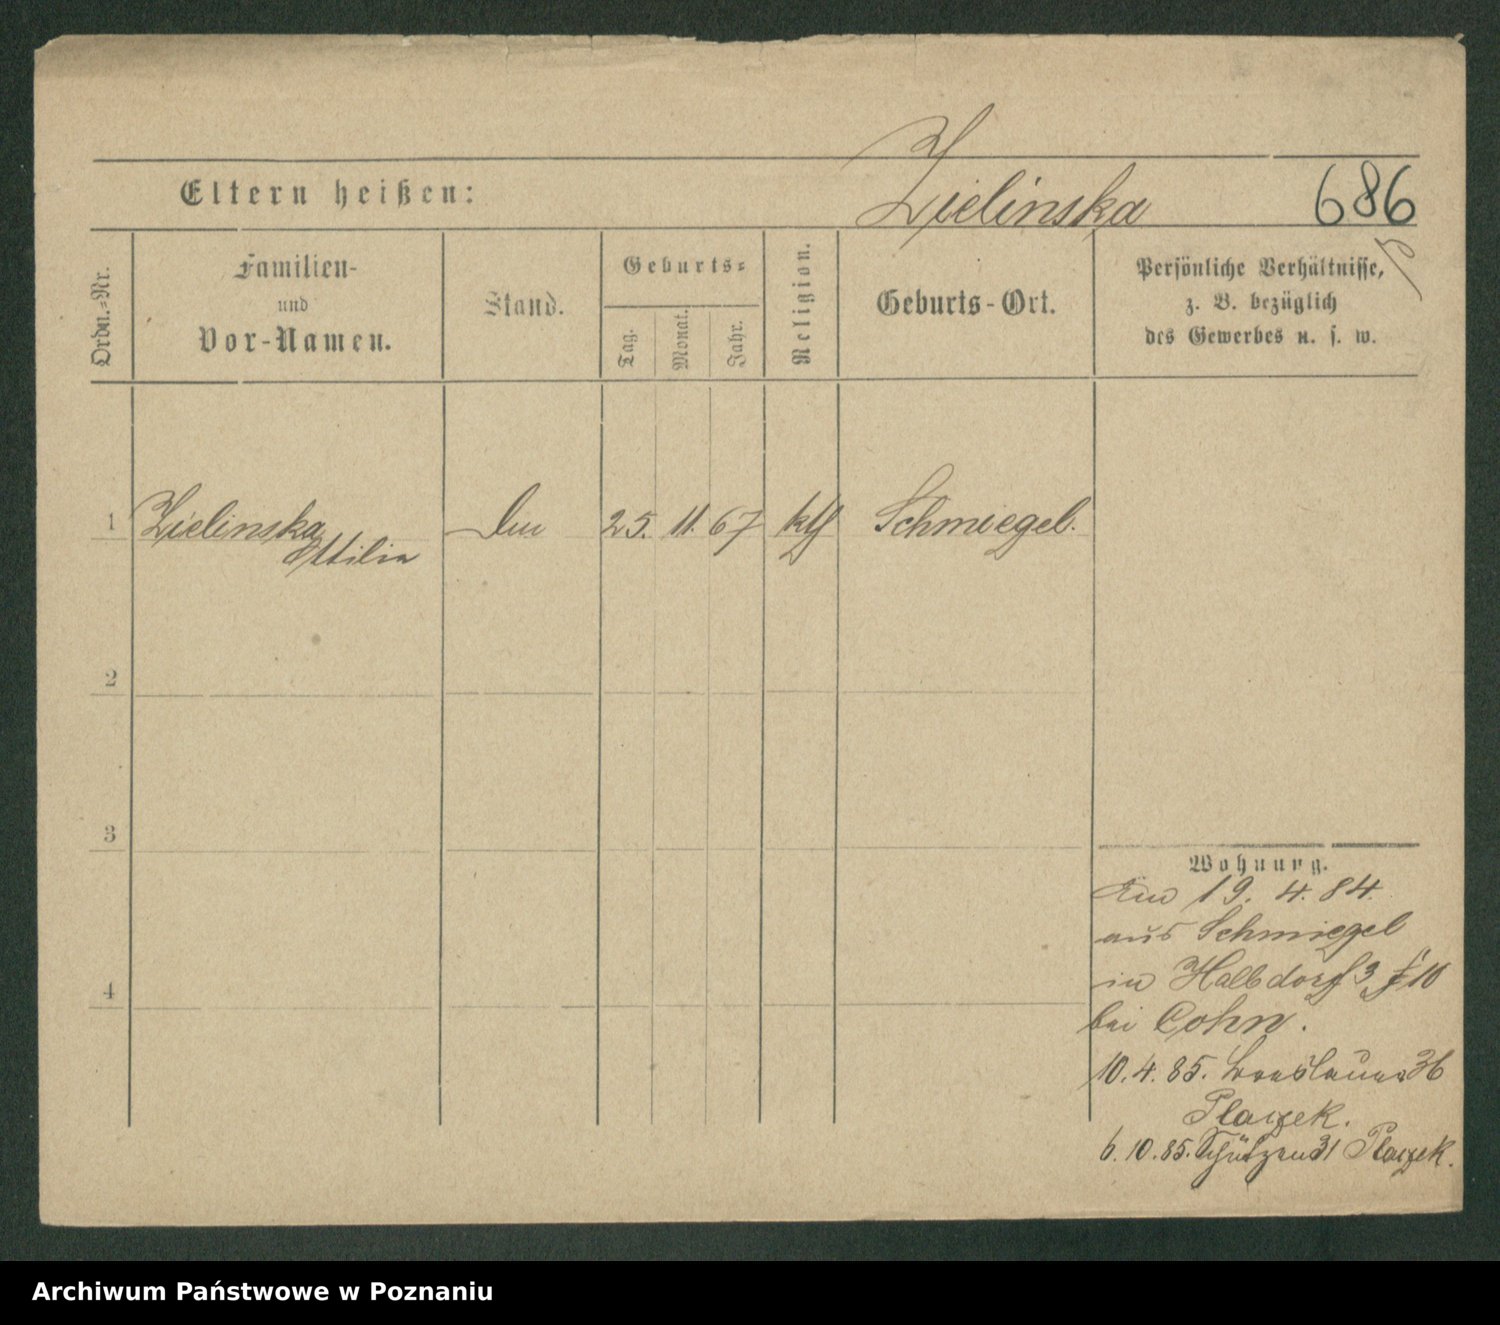 Zielinska
686
Eltern heißen:
Ordn.-Nr.
Familien-
und
Vor-Namen.
Stand.
Geburts-
Tag.
Monat.
Jahr.
Religion.
Geburts-Ort.
Persönliche Verhältnisse,
z. B. bezüglich
des Gewerbes u. s. w.
1 Zielinska 25. 11. 67 kth Schmiegel.
Ottilia
2
3
4
Wohnung.
19. 4. 84.
aus Schmiegel
in Halbdorf 3 10
bei Cohn.
10. 4. 85. Breslauer 36
Placzek.
6. 10. 85. Schützen 31 Placzek.
Archiwum Państwowe w Poznaniu